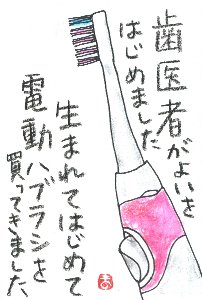 歯医者がよいを
はじめました
生まれてはじめて
電動ハブラシを
買ってきました